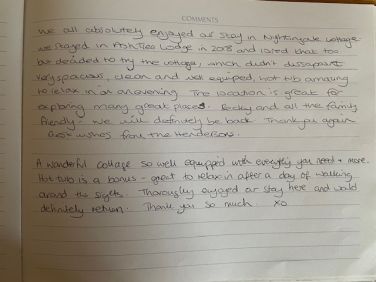 COMMENTS
We all absolutely enjoyed our stay in Nightingale cottage
we stayed in Ash Tree Lodge in 2018 and loved that too
but decided to try the cottages, which didn't dissapoint
very spacious, clean and well equiped, hot tub amazing
to relax in of an evening. The location is great for
exploring many great places. Becky and all the family
friendly - we will definitely be back. Thankyou again
Best wishes from the Hendersons.
A wonderful cottage so well equipped with everything you need & more.
Hot tub is a bonus - great to relax in after a day of walking
around the sights. Thoroughly enjoyed our stay here and would
definitely return. Thank you so much. xo